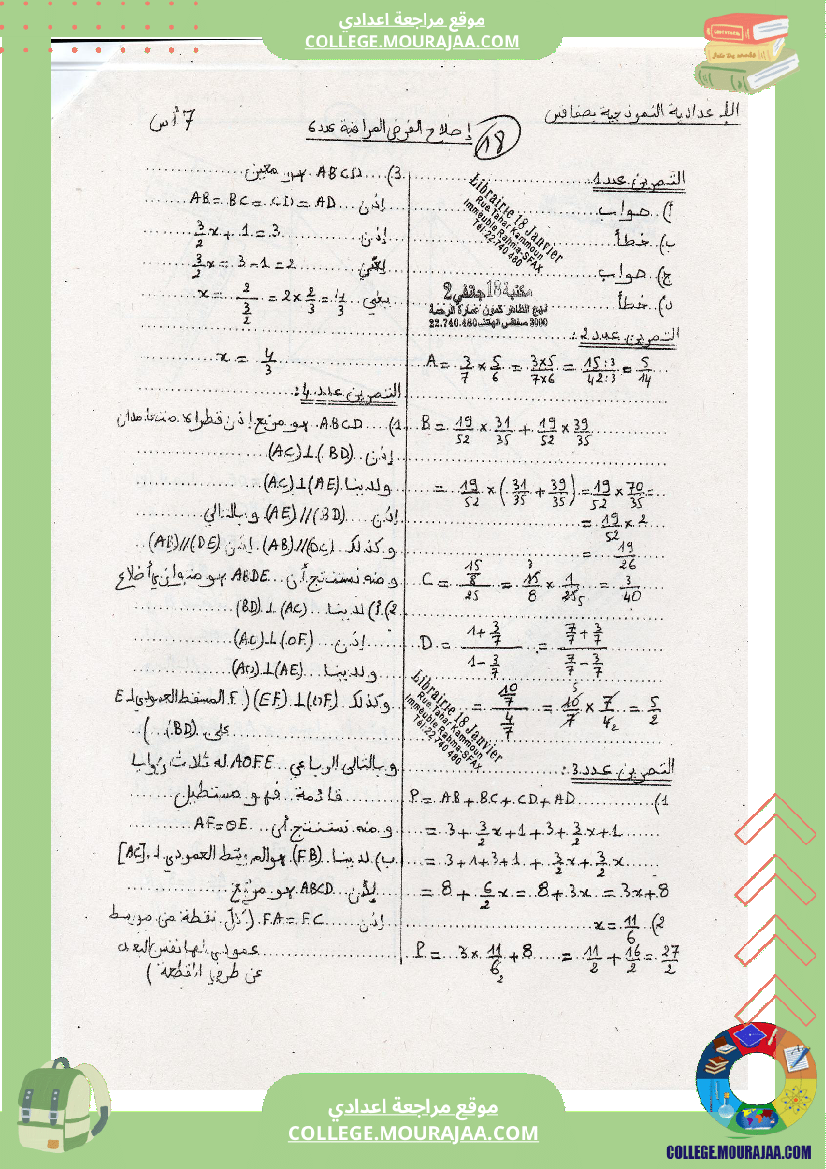 موقع مراجعة اعدادي
COLLEGE.MOURAJAA.COM
الإعدادية النموذجية بصفاقس
18
إصلاح الفرض المراقبة عدد 6
7 أس
التمرين عدد 1
أ) صواب
ب) خطأ
ج) صواب
د) خطأ
Librairie 18 Janvier
Rue Tahar Kammoun
Immeuble Rahma-SFAX
Tél:22 740 480
مكتبة 18 جانفي 2
نهج الطاهر كمون عمارة الرحمة
3000 صفاقس الهاتف 22.740.480
التمرين عدد 2:
A = 3/7 × 5/6 = 3×5/7×6 = 15:3/42:3 = 5/14
B = 19/52 × 31/35 + 19/52 × 39/35
= 19/52 × (31/35 + 39/35) = 19/52 × 70/35 =
= 19/52 × 2
= 19/26
C = 15/8/25 = 15/8 × 1/25 = 3/40
D = 1+3/7 / 1-3/7 = 7/7+3/7 / 7/7-3/7
= 10/7 / 4/7 = 10/7 × 7/4 = 5/2
Librairie 18 Janvier
Rue Tahar Kammoun
Immeuble Rahma-SFAX
Tél:22 740 480
التمرين عدد 3:
1) P = AB + BC + CD + AD
= 3 + 3/2 x + 1 + 3 + 3/2 x + 1
= 3 + 1 + 3 + 1 + 3/2 x + 3/2 x
= 8 + 6/2 x = 8 + 3x = 3x + 8
2) x = 11/6
P = 3 × 11/6 + 8 = 11/2 + 16/2 = 27/2
3) ABCD هو معين
إذن AB = BC = CD = AD
إذن 3/2 x + 1 = 3
يعني 3/2 x = 3 - 1 = 2
يعني x = 2 / 3/2 = 2 × 2/3 = 4/3
x = 4/3
التمرين عدد 4:
1) ABCD هو مربع إذن قطراه متعامدان
إذن (AC) ⊥ (BD)
ولدينا (AC) ⊥ (AE)
إذن (AE) // (BD) وبالتالي
وكذلك (AB) // (DC) إذن (AB) // (DE)
ومنه نستنتج أن ABDE هو متوازي أضلاع
2) أ) لدينا (BD) ⊥ (AC)
إذن (AC) ⊥ (OF)
ولدينا (AO) ⊥ (AE)
وكذلك (EF) ⊥ (OF) (F المسقط العمودي لـ E
على (BD))
وبالتالي الرباعي AOFE له ثلاث زوايا
قائمة فهو مستطيل
ومنه نستنتج أن AF = OE
ب) لدينا (FB) هو الموسط العمودي لـ [AC]
لأن ABCD مربع
إذن FA = FC (كل نقطة من موسط
عمودي لها نفس البعد
عن طرفي القطعة)
موقع مراجعة اعدادي
COLLEGE.MOURAJAA.COM
COLLEGE.MOURAJAA.COM